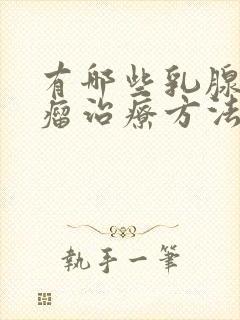 有哪些乳腺
瘤治疗方法
执手一笔